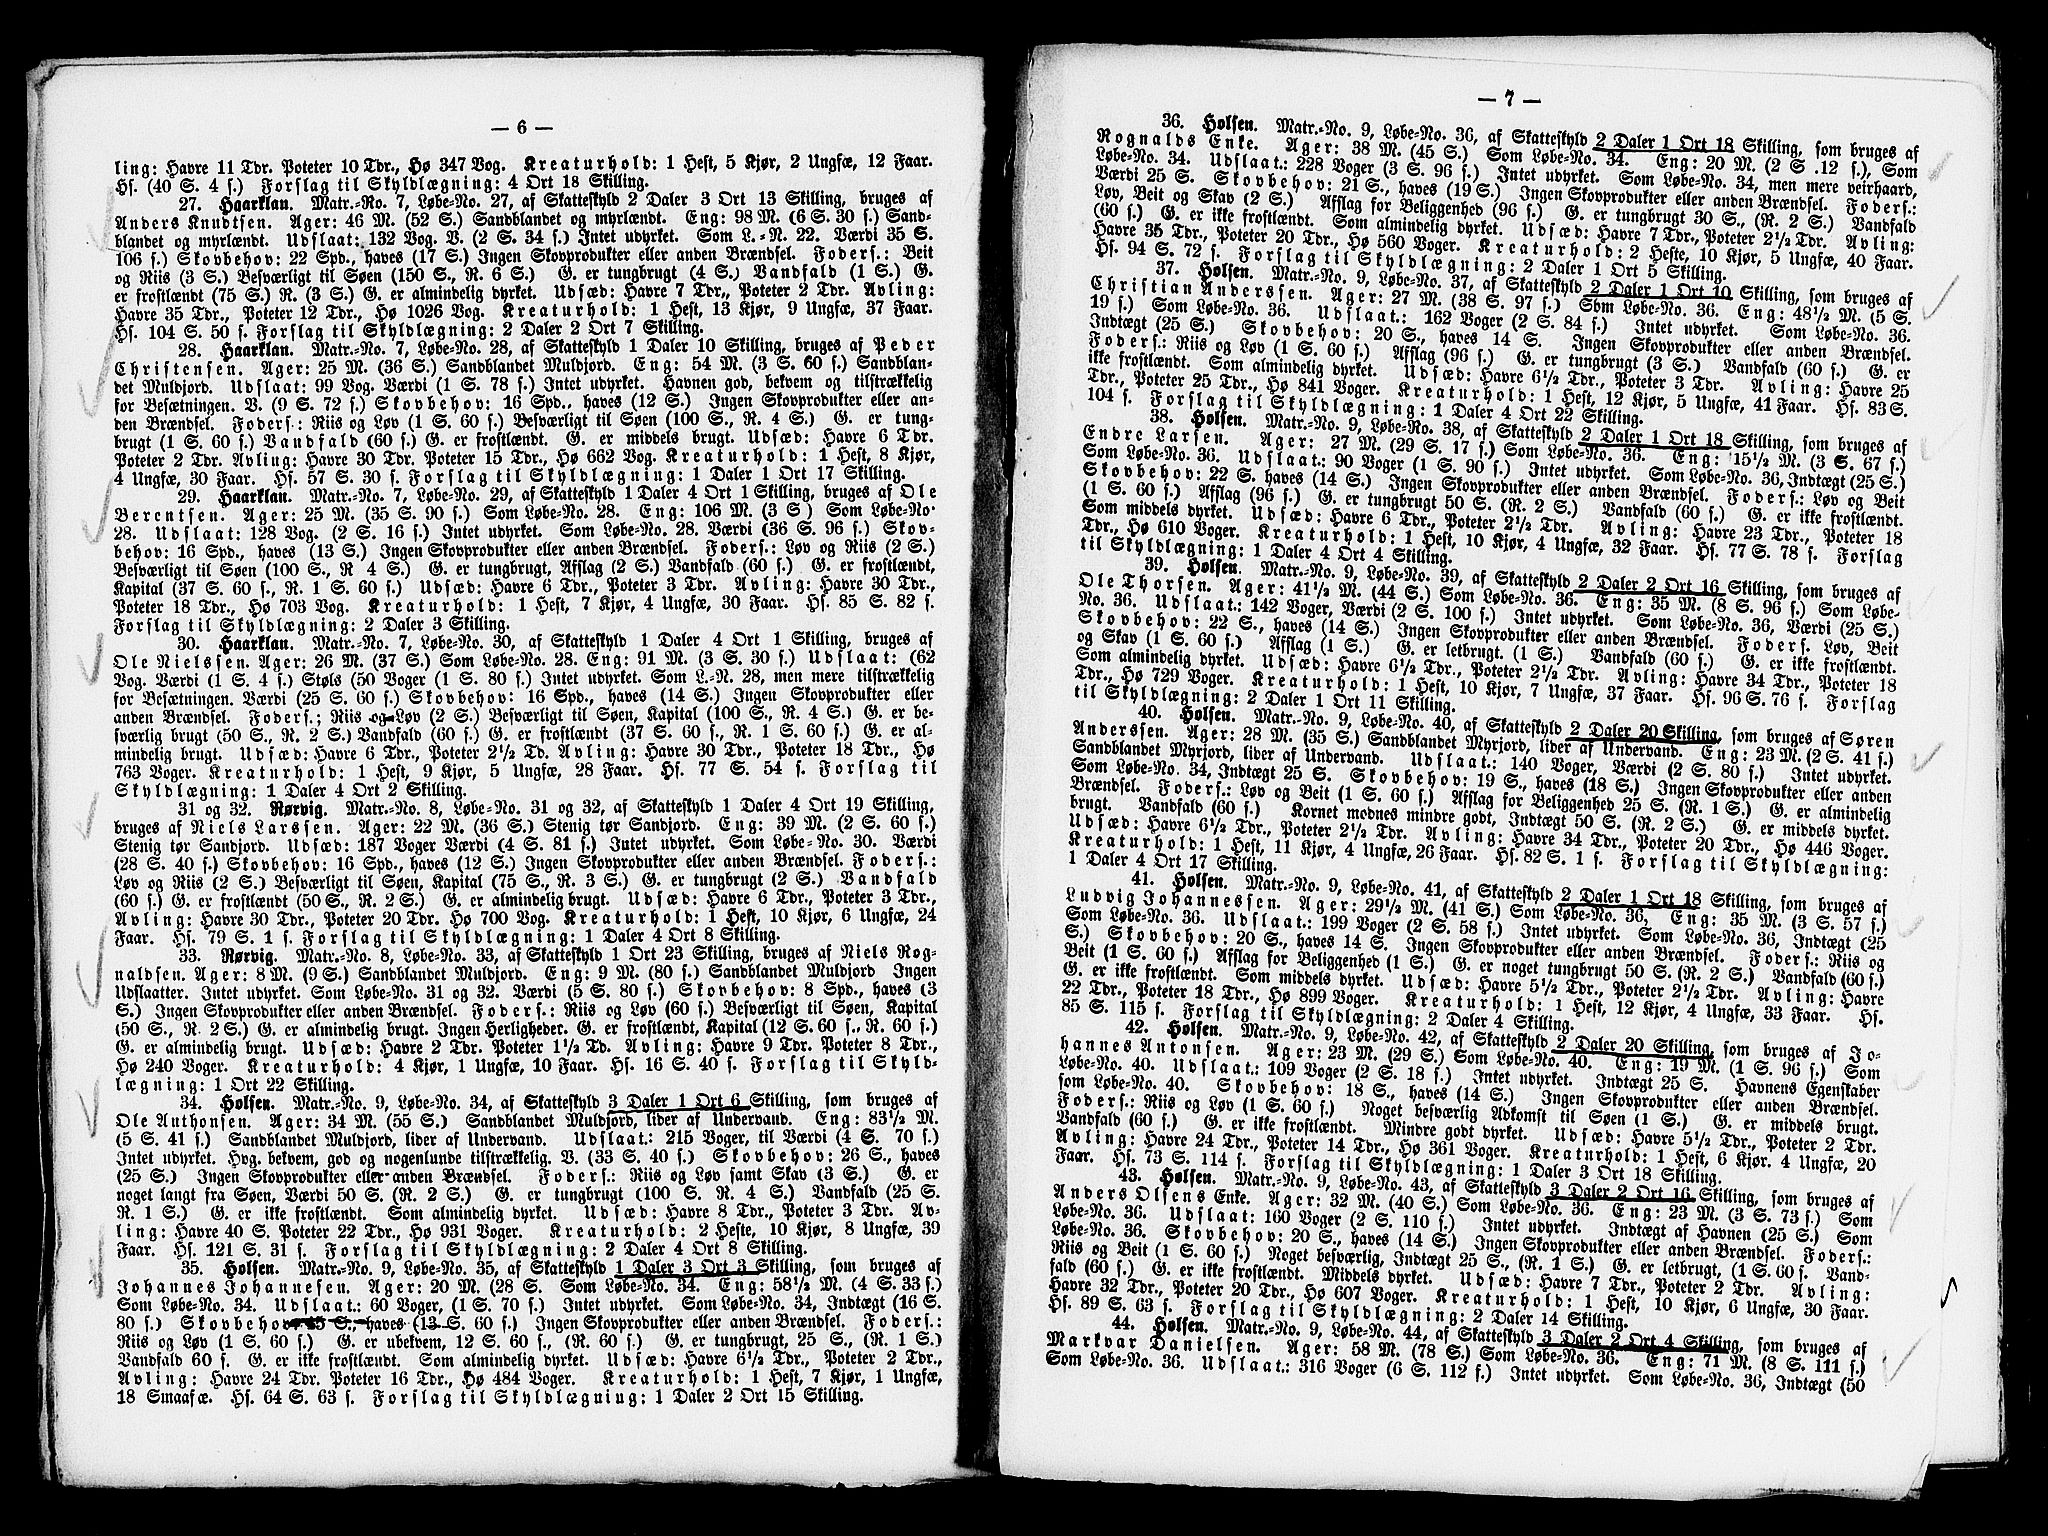 — 6 —
ling: Havre 11 Tdr. Poteter 10 Tdr., Hø 347 Vog. Kreaturhold: 1 Hest, 5 Kjør, 2 Ungfæ, 12 Faar.
Hs. (40 S. 4 s.) Forslag til Skyldlægning: 4 Ort 18 Skilling.
27. Haarklan. Matr.-No. 7, Løbe-No. 27, af Skatteskyld 2 Daler 3 Ort 13 Skilling, bruges af
Anders Knudtsen. Ager: 46 M. (52 S.) Sandblandet og myrlændt. Eng: 98 M. (6 S. 30 s.) Sand-
blandet og myrlændt. Udslaat: 132 Vog. V. (2 S. 34 s.) Intet udyrket. Som L.-N. 22. Værdi 35 S.
106 s.) Skovbehov: 22 Spd., haves (17 S.) Ingen Skovprodukter eller anden Brændsel. Foders.: Beit
og Riis (3 S.) Besværligt til Søen (150 S., R. 6 S.) G. er tungbrugt (4 S.) Vandfald (1 S.) G.
er frostlændt (75 S.) R. (3 S.) G. er almindelig dyrket. Udsæd: Havre 7 Tdr., Poteter 2 Tdr. Avling:
Havre 35 Tdr., Poteter 12 Tdr., Hø 1026 Vog. Kreaturhold: 1 Hest, 13 Kjør, 9 Ungfæ, 37 Faar.
Hs. 104 S. 50 s. Forslag til Skyldlægning: 2 Daler 2 Ort 7 Skilling.
28. Haarklan. Matr.-No. 7, Løbe-No. 28, af Skatteskyld 1 Daler 10 Skilling, bruges af Peder
Christensen. Ager: 25 M. (36 S.) Sandblandet Muldjord. Eng: 54 M. (3 S. 60 s.) Sandblan-
det Muldjord. Udslaat: 99 Vog. Værdi (1 S. 78 s.) Intet udyrket. Havnen god, bekvem og tilstrækkelig
for Besætningen. V. (9 S. 72 s.) Skovbehov: 16 Spd., haves (12 S.) Ingen Skovprodukter eller an-
den Brændsel. Foders.: Riis og Løv (1 S. 60 s.) Besværligt til Søen (100 S., R. 4 S.) G. er tung-
brugt (1 S. 60 s.) Vandfald (60 s.) G. er frostlændt. G. er middels brugt. Udsæd: Havre 6 Tdr.
Poteter 2 Tdr. Avling: Havre 30 Tdr. Poteter 15 Tdr., Hø 662 Vog. Kreaturhold: 1 Hest, 8 Kjør,
4 Ungfæ, 30 Faar. Hs. 57 S. 30 s. Forslag til Skyldlægning: 1 Daler 1 Ort 17 Skilling.
29. Haarklan. Matr.-No. 7, Løbe-No. 29, af Skatteskyld 1 Daler 4 Ort 1 Skilling, bruges af Ole
Berentsen. Ager: 25 M. (35 S. 90 s.) Som Løbe-No. 28. Eng: 106 M. (3 S) Som Løbe-No.
28. Udslaat: 128 Vog. (2 S. 16 s.) Intet udyrket. Som Løbe-No. 28. Værdi (36 S. 96 s.) Skov-
behov: 16 Spd., haves (13 S.) Ingen Skovprodukter eller anden Brændsel. Foders.: Løv og Riis (2 S.)
Besværligt til Søen (100 S., R 4 S.) G. er tungbrugt, Afslag (2 S.) Vandfald (60 s.) G. er frostlændt,
Kapital (37 S. 60 s., R. 1 S. 60 s.) Udsæd: Havre 6 Tdr., Poteter 3 Tdr. Avling: Havre 30 Tdr.,
Poteter 18 Tdr., Hø 703 Vog. Kreaturhold: 1 Hest, 7 Kjør, 4 Ungfæ, 30 Faar. Hs. 85 S. 82 s.
Forslag til Skyldlægning: 2 Daler 3 Skilling.
30. Haarklan. Matr.-No. 7, Løbe-No. 30, af Skatteskyld 1 Daler 4 Ort 1 Skilling, bruges af
Ole Nielssen. Ager: 26 M. (37 S.) Som Løbe-No. 28. Eng: 91 M. (3 S. 30 s.) Udslaat: (62
Vog. Værdi (1 S. 4 s.) Støls (50 Voger (1 S. 80 s.) Intet udyrket. Som L.-N. 28, men mere tilstrækkelig
for Besætningen. Værdi (25 S. 60 s.) Skovbehov: 16 Spd., haves (14 S.) Ingen Skovprodukter eller
anden Brændsel. Foders.; Riis og Løv (2 S.) Besværligt til Søen, Kapital (100 S., R. 4 S.) G. er be-
sværlig brugt (50 S., R. 2 S.) Vandfald (60 s.) G. er frostlændt (37 S. 60 s., R. 1 S. 60 s.) G. er al-
mindelig brugt. Udsæd: Havre 6 Tdr., Poteter 2½ Td. Avling: Havre 30 Tdr., Poteter 18 Tdr., Hø
763 Voger. Kreaturhold: 1 Hest, 9 Kjør, 5 Ungfæ, 28 Faar. Hs. 77 S. 54 s. Forslag til
Skyldlægning: 1 Daler 4 Ort 2 Skilling.
31 og 32. Rørvig. Matr.-No. 8, Løbe-No. 31 og 32, af Skatteskyld 1 Daler 4 Ort 19 Skilling,
bruges af Niels Larssen. Ager: 22 M. (36 S.) Stenig tør Sandjord. Eng: 39 M. (2 S. 60 s.)
Stenig tør Sandjord. Udsæd: 187 Voger Værdi (4 S. 81 s.) Intet udyrket. Som Løbe-No. 30. Værdi
(28 S. 40 s.) Skovbehov: 16 Spd., haves (12 S.) Ingen Skovprodukter eller anden Brændsel. Foders.:
Løv og Riis (2 S.) Besværligt til Søen, Kapital (75 S., R. 3 S.) G. er tungbrugt (2 S.) Vandfald
(60 s.) G. er frostlændt (50 S., R. 2 S.) G. er almindelig brugt. Udsæd: Havre 6 Tdr., Poteter 3 Tdr.,
Avling: Havre 30 Tdr., Poteter 20 Tdr. Hø 700 Vog. Kreaturhold: 1 Hest, 10 Kjør, 6 Ungfæ, 24
Faar. Hs. 79 S. 1 s. Forslag til Skyldlægning: 1 Daler 4 Ort 8 Skilling.
33. Rørvig. Matr.-No. 8, Løbe-No. 33, af Skatteskyld 1 Ort 23 Skilling, bruges af Niels Rog-
naldsen. Ager: 8 M. (9 S.) Sandblandet Muldjord. Eng: 9 M. (80 s.) Sandblandet Muldjord Ingen
Udslaatter. Intet udyrket. Som Løbe-No. 31 og 32. Værdi (5 S. 80 s.) Skovbehov: 8 Spd., haves (3
S.) Ingen Skovprodukter eller anden Brændsel. Foders.: Riis og Løv (60 s.) Besværligt til Søen, Kapital
(50 S., R. 2 S.) G. er almindelig brugt. Ingen Herligheder. G. er frostlændt, Kapital (12 S. 60 s., R. 60 s.)
G. er almindelig brugt. Udsæd: Havre 2 Tdr., Poteter 1½ Td. Avling: Havre 9 Tdr. Poteter 8 Tdr.,
Hø 240 Voger. Kreaturhold: 4 Kjør, 1 Ungfæ, 10 Faar. Hs. 16 S. 40 s. Forslag til Skyld-
lægning: 1 Ort 22 Skilling.
34. Holsen. Matr.-No. 9, Løbe-No. 34, af Skatteskyld 3 Daler 1 Ort 6 Skilling, som bruges af
Ole Anthonsen. Ager: 34 M. (55 S.) Sandblandet Muldjord, lider af Undervand. Eng: 83½ M.
(5 S. 41 s.) Sandblandet Muldjord, lider af Undervand. Udslaat.: 215 Voger, til Værdi (4 S. 70 s.)
Intet udyrket. Hvg. bekvem, god og nogenlunde tilstrækkelig. V. (33 S. 40 s.) Skovbehov: 26 S., haves
(25 S.) Ingen Skovprodukter eller anden Brændsel. Foders.: Riis og Løv samt Skav (3 S.) G. er
noget langt fra Søen, Værdi 50 S. (R. 2 S.) G. er tungbrugt (100 S. R. 4 S.) Vandfald (25 S.
R. 1 S.) G. er ikke frostlændt. Som almindelig dyrket. Udsæd: Havre 8 Tdr., Poteter 3 Tdr. Av-
ling: Havre 40 S. Poteter 22 Tdr., Hø 931 Voger. Kreaturhold: 2 Heste, 10 Kjør, 8 Ungfæ, 39
Faar. Hs. 121 S. 31 s. Forslag til Skyldlægning: 2 Daler 4 Ort 8 Skilling.
35. Holsen. Matr.-No. 9, Løbe-No. 35, af Skatteskyld 1 Daler 3 Ort 3 Skilling, som bruges af
Johannes Johannesen. Ager: 20 M. (28 S. Som Løbe-No. 34. Eng: 58½ M. (4 S. 33 s.)
Som Løbe-No. 34. Udslaat.: 60 Voger, (1 S. 70 s.) Intet udyrket. Som Løbe-No. 34, Indtægt (16 S.
80 s.) Skovbehov S., haves (13 S. 60 s.) Ingen Skovprodukter eller anden Brændsel. Foders.:
Riis og Løv (1 S. 60 s.) G. er ubekvem, 12 S. 60 s., (R. 60 s.) G. er tungbrugt, 25 S., (R. 1 S.)
Vandfald 60 s. G. er ikke frostlændt. Som almindelig dyrket. Udsæd: Havre 6½ Tdr., Poteter 2 Tdr.,
Avling: Havre 24 Tdr. Poteter 16 Tdr., Hø 484 Voger. Kreaturhold: 1 Hest, 7 Kjør, 1 Ungfæ,
18 Smaafæ. Hs. 64 S. 63 s. Forslag til Skyldlægning: 1 Daler 2 Ort 15 Skilling.
— 7 —
36. Holsen. Matr.-No. 9, Løbe-No. 36, af Skatteskyld 2 Daler 1 Ort 18 Skilling, som bruges af
Rognalds Enke. Ager: 38 M. (45 S.) Som Løbe-No. 34. Eng: 20 M. (2 S .12 s.), Som
Løbe-No. 34. Udslaat.: 228 Voger (3 S. 96 s.) Intet udyrket. Som Løbe-No. 34, men mere veirhaard,
Værdi 25 S. Skovbehov: 21 S., haves (19 S.) Ingen Skovprodukter eller anden Brændsel. Foders.:
Løv, Beit og Skav (2 S.) Afslag for Beliggenhed (96 s.) G. er tungbrugt 30 S., (R. 2 S.) Vandfald
(60 s.) G. er ikke frostlændt. Som almindelig dyrket. Udsæd: Havre 7 Tdr., Poteter 2½ Tdr. Avling:
Havre 35 Tdr., Poteter 20 Tdr., Hø 560 Voger. Kreaturhold: 2 Heste, 10 Kjør, 5 Ungfæ, 40 Faar.
Hs. 94 S. 72 s. Forslag til Skyldlægning: 2 Daler 1 Ort 5 Skilling.
37. Holsen. Matr.-No. 9, Løbe-No. 37, af Skatteskyld 2 Daler 1 Ort 10 Skilling, som bruges af
Christian Anderssen. Ager: 27 M. (38 S. 97 s.) Som Løbe-No. 36. Eng: 48½ M. (5 S.
19 s.) Som Løbe-No. 36. Udslaat.: 162 Voger (2 S. 84 s.) Intet udyrket. Som Løbe-No. 36.
Indtægt (25 S.) Skovbehov: 20 S., haves 14 S. Ingen Skovprodukter eller anden Brændsel.
Foders.: Riis og Løv (1 S. 60 s.) Afslag (96 s.) G. er tungbrugt (3 S.) Vandfald (60 s.) G. er
ikke frostlændt. Som almindelig dyrket. Udsæd: Havre 6½ Tdr., Poteter 3 Tdr. Avling: Havre 25
Tdr., Poteter 25 Tdr., Hø 841 Voger. Kreaturhold: 1 Hest, 12 Kjør, 5 Ungfæ, 41 Faar. Hs. 83 S.
104 s. Forslag til Skyldlægning: 1 Daler 4 Ort 22 Skilling.
38. Holsen. Matr.-No. 9, Løbe-No. 38, af Skatteskyld 2 Daler 1 Ort 18 Skilling, som bruges af
Endre Larsen. Ager: 27 M. (29 S. 17 s.) Som Løbe-No. 36. Eng: 15½ M. (3 S. 67 s.)
Som Løbe-No. 36. Udslaat.: 90 Voger (1 S. 90 s.) Intet udyrket. Som Løbe-No. 36, Indtægt (25 S.)
Skovbehov: 22 S. haves (14 S.) Ingen Skovprodukter eller anden Brændsel. Foders.: Løv og Beit
(1 S. 60 s.) Afslag (96 s.) G. er tungbrugt 50 S. (R. 2 S.) Vandfald (60 s.) G. er ikke frostlændt.
Som middels dyrket. Udsæd: Havre 6 Tdr., Poteter 2½ Tdr. Avling: Havre 23 Tdr., Poteter 18
Tdr., Hø 610 Voger. Kreaturhold: 1 Hest, 10 Kjør, 4 Ungfæ, 32 Faar. Hs. 77 S. 78 s. Forslag
til Skyldlægning: 1 Daler 4 Ort 4 Skilling.
39. Holsen. Matr.-No. 9, Løbe-No. 39, af Skatteskyld 2 Daler 2 Ort 16 Skilling, som bruges af
Ole Thorsen. Ager: 41½ M. (44 S.) Som Løbe-No. 36. Eng: 35 M. (8 S. 96 s.) Som Løbe-
No. 36. Udslaat.: 142 Voger, Værdi (2 S. 100 s.) Intet udyrket. Som Løbe-No. 36, Værdi (25 S.)
Skovbehov: 22 S., haves (14 S.) Ingen Skovprodukter eller anden Brændsel. Foders. Løv, Beit
og Skav (1 S. 60 s.) Afslag (1 S.) G. er letbrugt. (1 S.) Vandfald (60 s.) G. er ikke frostlændt.
Som almindelig dyrket. Udsæd: Havre 6½ Tdr., Poteter 2½ Tdr. Avling: Havre 34 Tdr., Poteter 18
Tdr., Hø 729 Voger. Kreaturhold: 1 Hest, 10 Kjør, 7 Ungfæ, 37 Faar. Hs. 96 S. 76 s. Forslag
til Skyldlægning: 2 Daler 1 Ort 11 Skilling.
40. Holsen. Matr.-No. 9, Løbe-No. 40, af Skatteskyld 2 Daler 20 Skilling, som bruges af Søren
Anderssen. Ager: 28 M. (35 S.) Sandblandet Myrjord, lider af Undervand. Eng: 23 M. (2 S. 41 s.)
Sandblandet Myrjord, lider af Undervand. Udslaat.: 140 Voger, Værdi (2 S. 80 s.) Intet udyrket.
Som Løbe-No. 34, Indtægt 25 S. Skovbehov: 19 S., haves (18 S.) Ingen Skovprodukter eller anden
Brændsel. Foders.: Løv og Beit (1 S. 60 s.) Afslag for Beliggenhed 25 S. (R. 1 S.) G. er almindelig
brugt. Vandfald (60 s.) Kornet modnes mindre godt, Indtægt 50 S. (R. 2 S.) G. er middels dyrket.
Udsæd: Havre 6½ Tdr., Poteter 2½ Tdr. Avling: Havre 34 Tdr., Poteter 20 Tdr., Hø 446 Voger.
Kreaturhold: 1 Hest, 11 Kjør, 4 Ungfæ, 26 Faar. Hs. 82 S. 1 s. Forslag til Skyldlægning:
1 Daler 4 Ort 17 Skilling.
41. Holsen. Matr.-No. 9, Løbe-No. 41, af Skatteskyld 2 Daler 1 Ort 18 Skilling, som bruges af
Ludvig Johannessen. Ager: 29½ M. (41 S.) Som Løbe-No. 36, Eng: 35 M. (3 S. 57 s.)
Som Løbe-No. 36. Udslaat.: 199 Voger (2 S. 58 s.) Intet udyrket. Som Løbe-No. 36, Indtægt (25
S.) Skovbehov: 20 S., haves 14 S. Ingen Skovprodukter eller anden Brændsel. Foders.: Riis og
Beit (1 S. 60 s.) Afslag for Beliggenhed (1 S.) G. er noget tungbrugt 50 S. (R. 2 S.) Vandfald (60 s.)
G. er ikke frostlændt. Som middels dyrket. Udsæd: Havre 5½ Tdr., Poteter 2½ Tdr. Avling: Havre
22 Tdr., Poteter 18 Tdr., Hø 899 Voger. Kreaturhold: 1 Hest, 12 Kjør, 4 Ungfæ, 33 Faar. Hs.
85 S. 115 s. Forslag til Skyldlægning: 2 Daler 4 Skilling.
42. Holsen. Matr.-No. 9, Løbe-No. 42, af Skatteskyld 2 Daler 20 Skilling, som bruges af Jo-
hannes Antonsen. Ager: 23 M. (29 S.) Som Løbe-No. 40. Eng: 19 M. (1 S. 96 s.) Som
Løbe-No. 40. Udslaat.: 109 Voger (2 S. 18 s.) Intet udyrket. Indtægt 25 S. Havnens Egenskaber
som Løbe-No. 40. Skovbehov: 18 S., haves (14 S.) Ingen Skovprodukter eller anden Brændsel.
Foders.: Riis og Løv (1 S. 60 s.) Noget besværlig Adkomst til Søen (1 S.) G. er middels brugt.
Vandfald (60 s.) G. er ikke frostlændt. Mindre godt dyrket. Udsæd: Havre 5½ Tdr., Poteter 2 Tdr.
Avling: Havre 24 Tdr., Poteter 14 Tdr., Hø 361 Voger. Kreaturhold: 1 Hest, 6 Kjør, 4 Ungfæ, 20
Faar. Hs. 73 S. 114 s. Forslag til Skyldlægning: 1 Daler 3 Ort 18 Skilling.
43. Holsen. Matr.-No. 9, Løbe-No. 43, af Skatteskyld 3 Daler 2 Ort 16 Skilling, som bruges af
Anders Olsens Enke. Ager: 32 M. (40 S.) Som Løbe-No. 36. Eng: 23 M. (3 S. 73 s.) Som
Løbe-No. 36. Udslaat.: 160 Voger (2 S. 110 s.) Intet udyrket. Indtægt af Havnen (25 S.) Som
Løbe-No. 36. Skovbehov: 20 S., haves (14 S.) Ingen Skovprodukter eller anden Brændsel. Foders.:
Riis og Beit (1 S. 60 s.) Noget besværlig, Indtægt 25 S., (R. 1 S.) G. er letbrugt, (1 S. 60 s. Vand-
fald (60 s.) G. er ikke frostlændt. Middels dyrket. Udsæd: Havre 7 Tdr., Poteter 2 Tdr. Avling:
Havre 32 Tdr., Poteter 20 Tdr., Hø 607 Voger. Kreaturhold: 1 Hest, 10 Kjør, 6 Ungfæ, 30 Faar.
Hs. 89 S. 63 s. Forslag til Skyldlægning: 2 Daler 14 Skilling.
44. Holsen. Matr.-No. 9, Løbe-No. 44, af Skatteskyld 3 Daler 2 Ort 4 Skilling, som bruges af
Markvar Danielsen. Ager: 58 M. (78 S.) Som Løbe-No. 36. Eng: 71 M. (8 S. 111 s.)
Som Løbe-No. 36. Udslaat.: 316 Voger (6 S. 112 s.) Intet udyrket. Som Løbe-No. 36, Indtægt (50